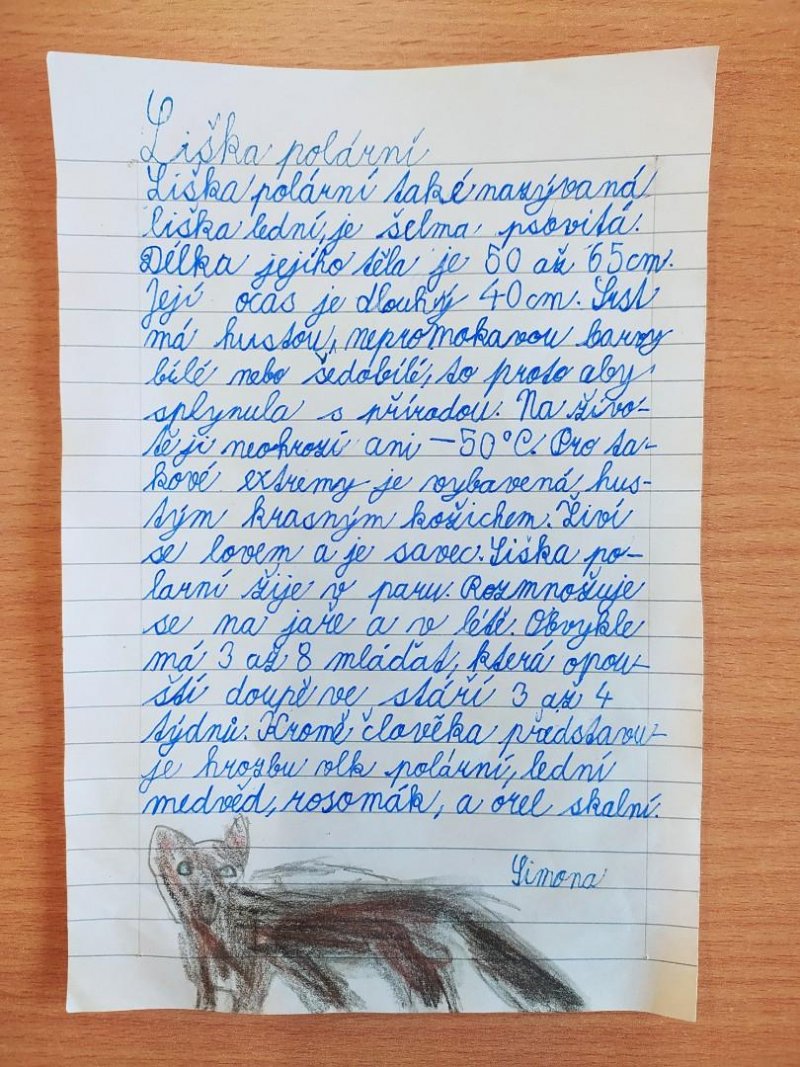 Liška polární
Liška polární také nazývaná
liška lední, je šelma psovitá.
Délka jejího těla je 50 až 65cm.
Její ocas je dlouhý 40cm. Srst
má hustou, nepromokavou barvy
bílé nebo šedobílé, to proto aby
splynula s přírodou. Na živo-
tě ji neohrozí ani -50°C. Pro ta-
kové extremy je vybavená hus-
tým krasným kožichem. Živí
se lovem a je savec. Liška po-
larní žije v paru. Rozmnožuje
se na jaře a v létě. Obvykle
má 3 až 8 mláďat, která opou-
ští doupě ve stáří 3 až 4
týdnů. Kromě člověka představu-
je hrozbu vlk polární, lední
medvěd, rosomák, a orel skalní.
Simona